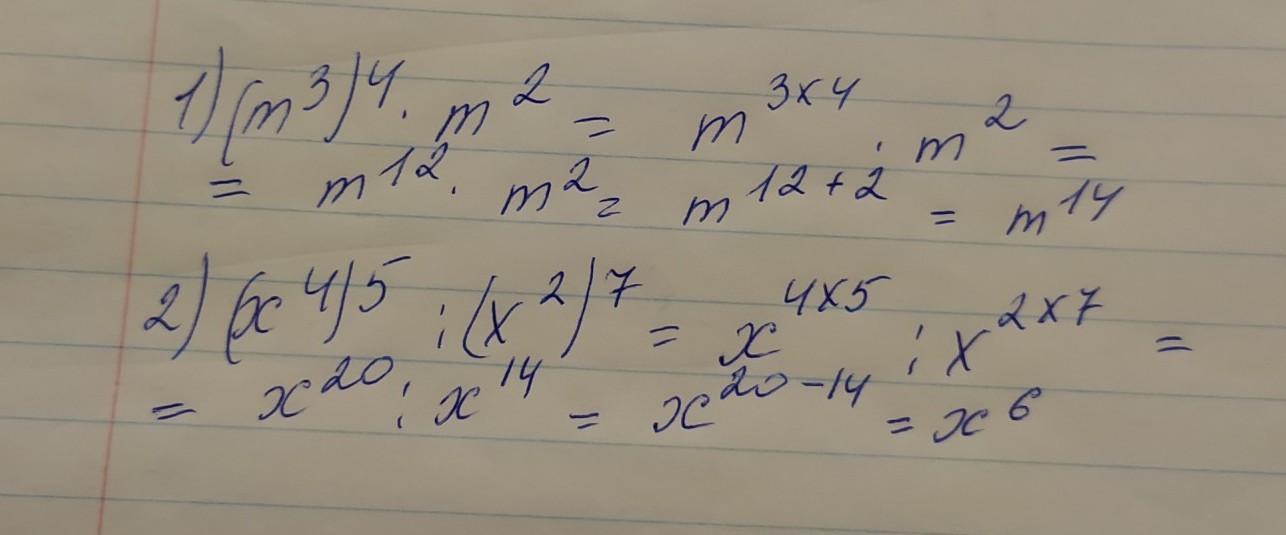 1) (m³)⁴ · m² = m³ˣ⁴ · m² =
= m¹² · m² = m¹²⁺² = m¹⁴
2) (x⁴)⁵ : (x²)⁷ = x⁴ˣ⁵ : x²ˣ⁷ =
= x²⁰ : x¹⁴ = x²⁰⁻¹⁴ = x⁶